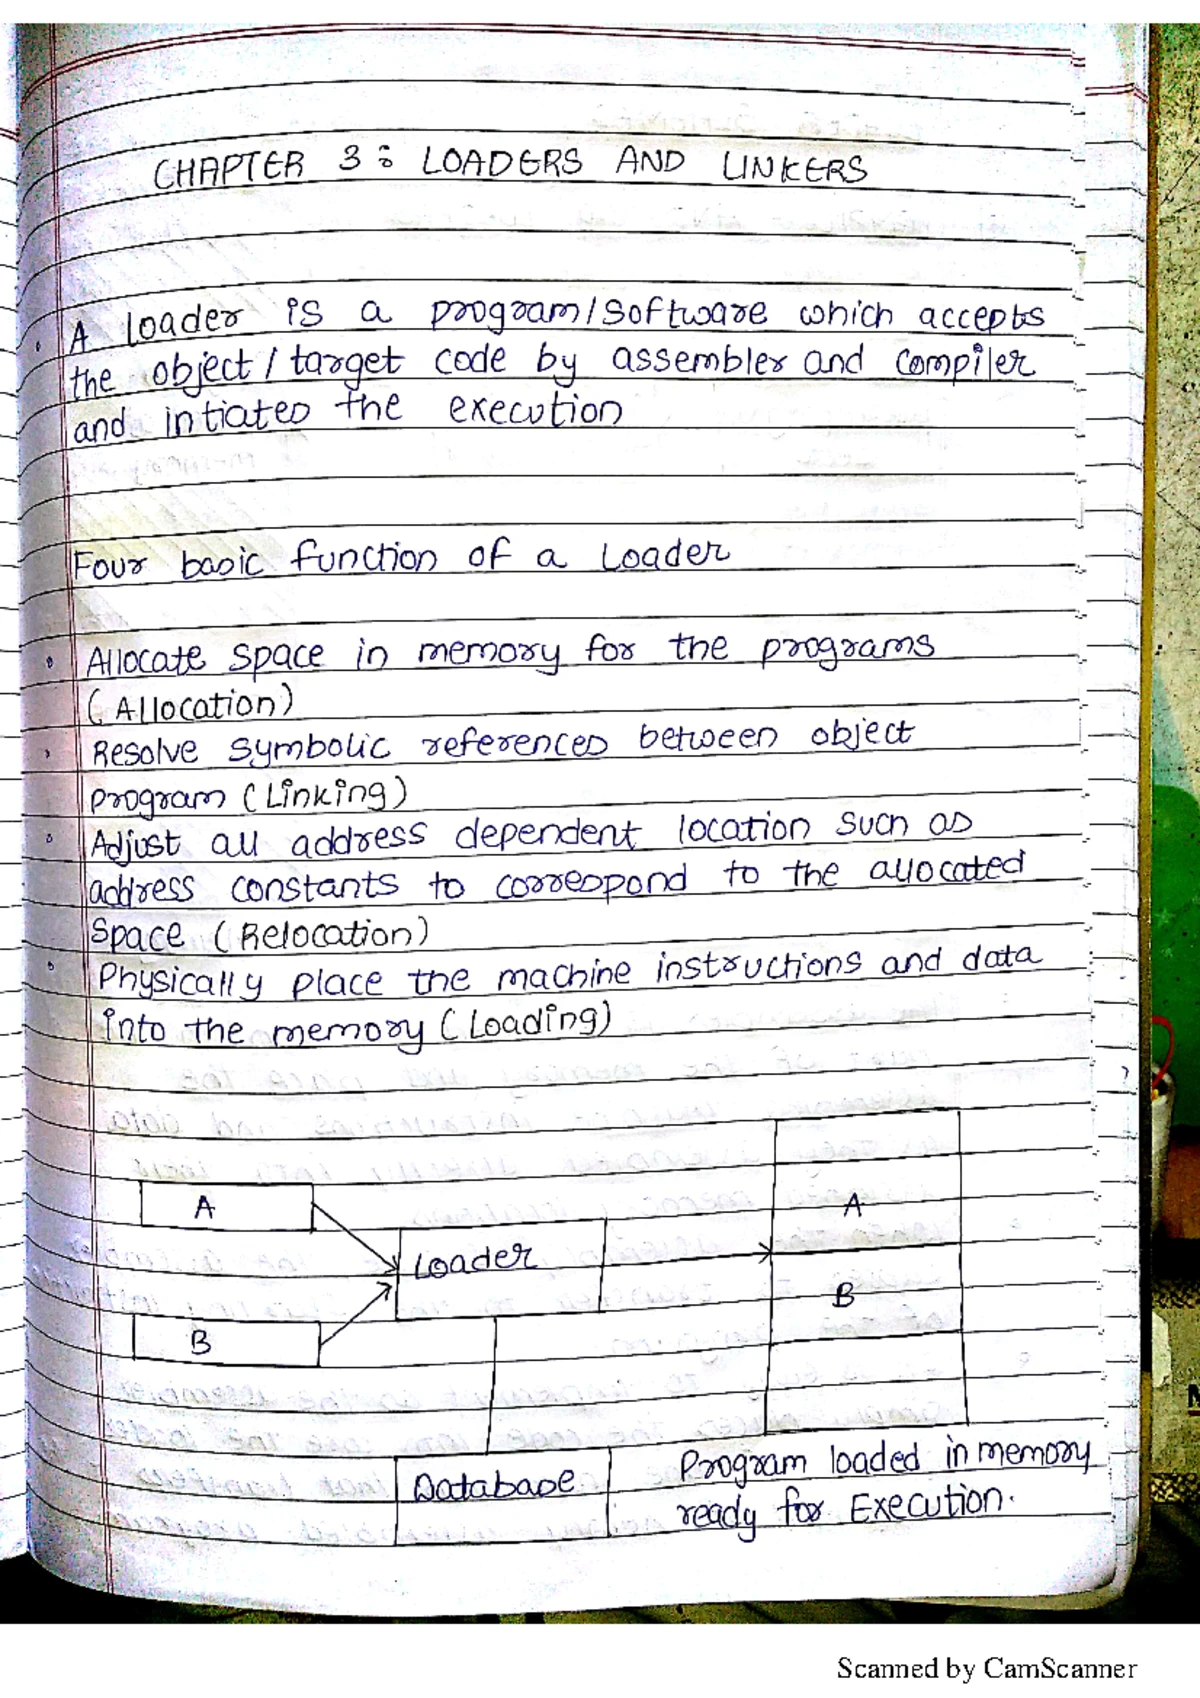 CHAPTER 3: LOADERS AND LINKERS
A loader is a program/software which accepts
the object/target code by assembler and compiler
and intiates the execution
Four basic function of a Loader
Allocate space in memory for the programs
(Allocation)
Resolve symbolic references between object
program (Linking)
Adjust all address dependent location such as
address constants to correspond to the allocated
space (Relocation)
Physically place the machine instructions and data
into the memory (Loading)
A
A
Loader
B
B
Database
Program loaded in memory
ready for Execution.
Scanned by CamScanner